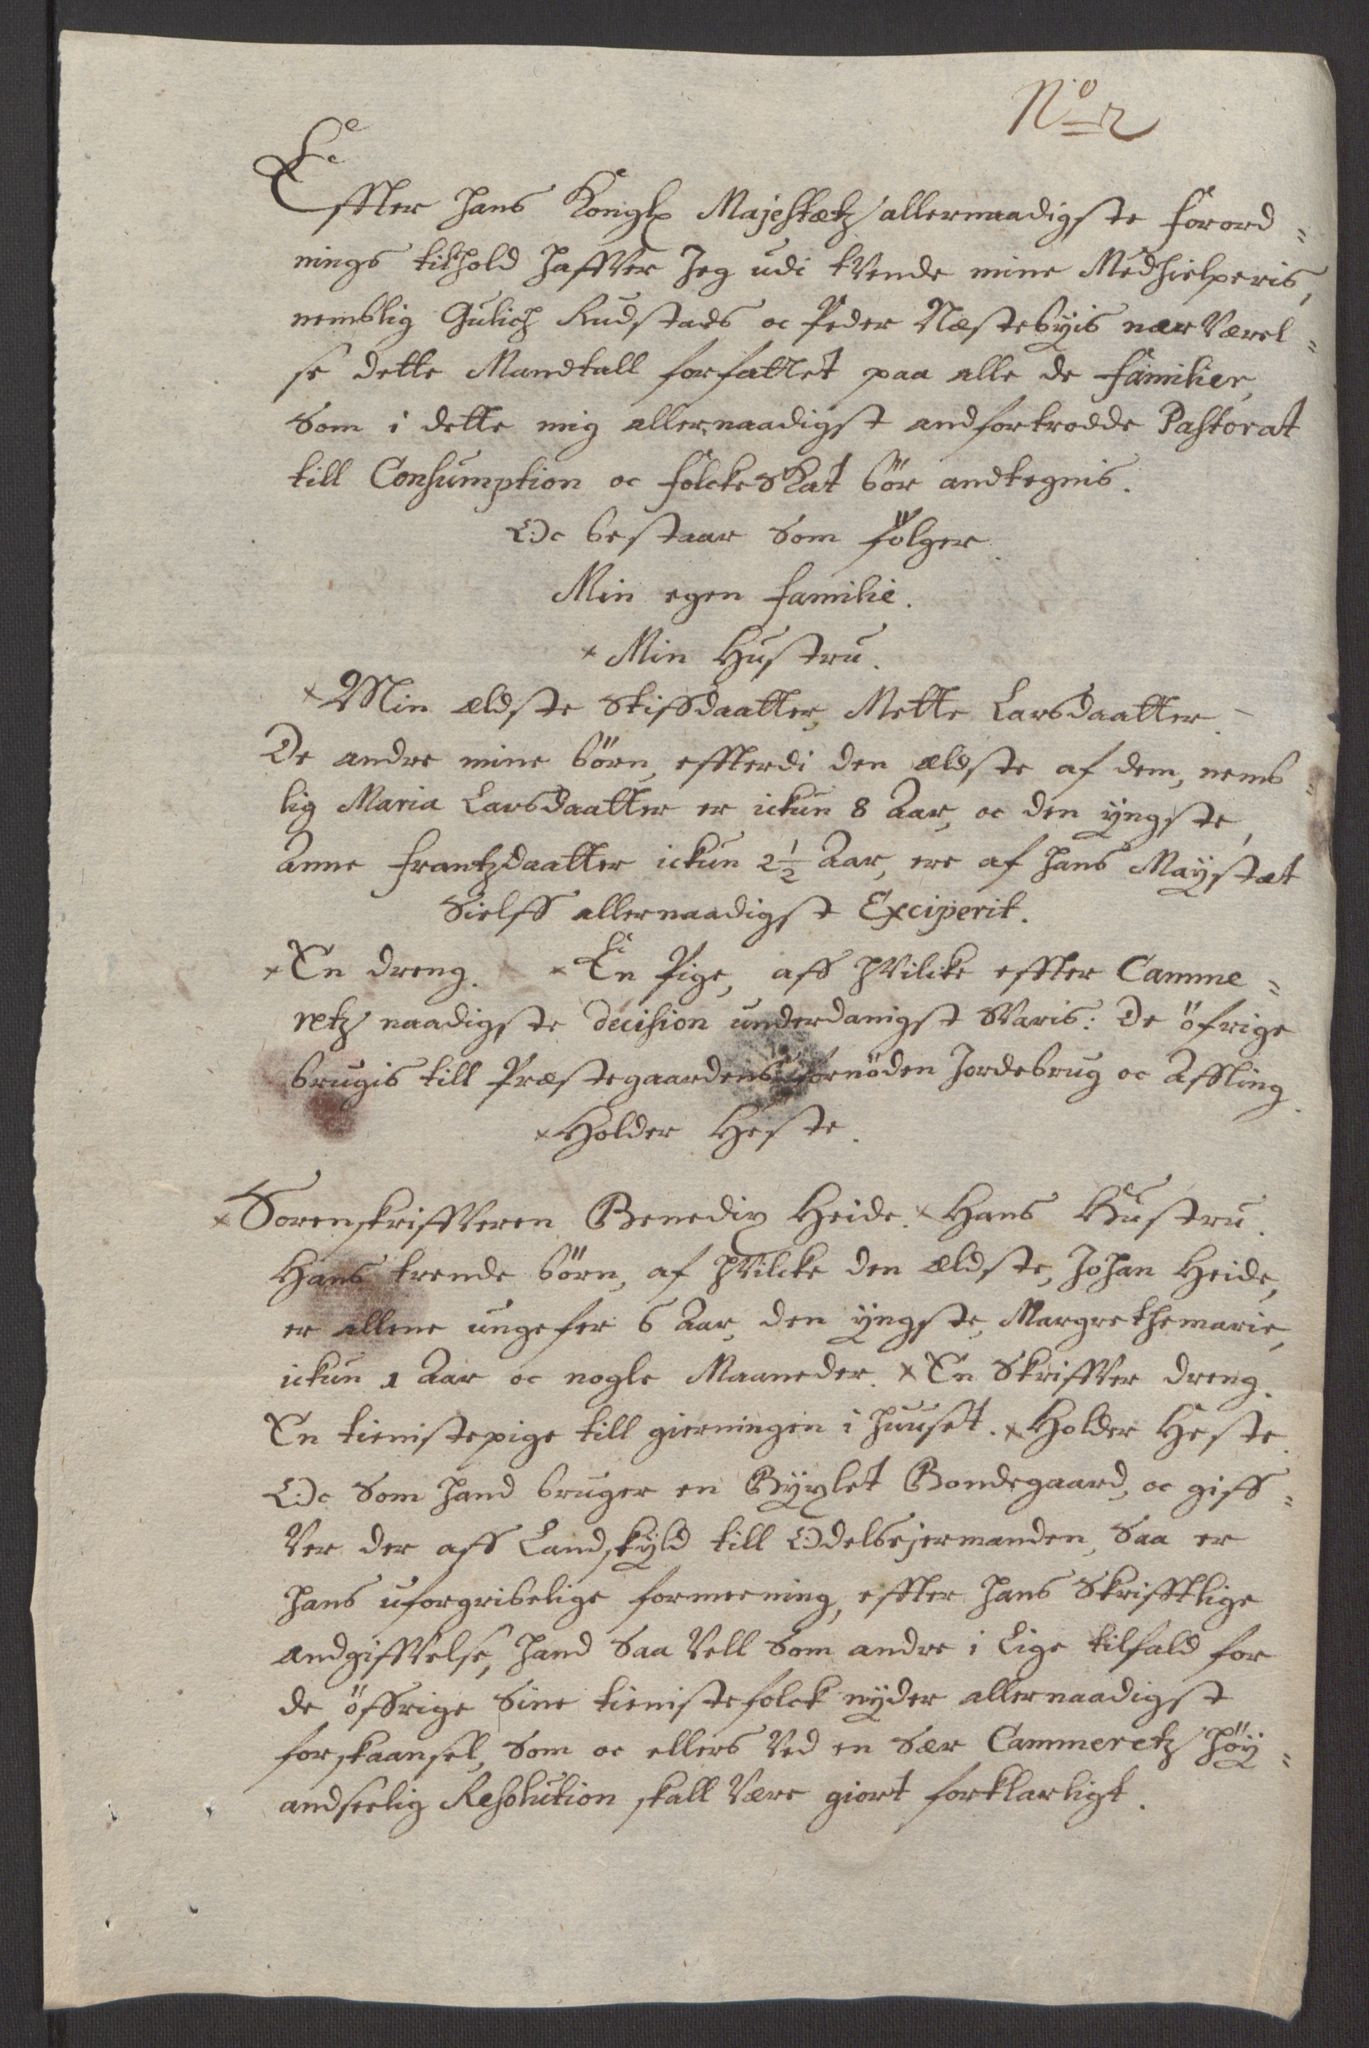 No 2
Effter hans Kongl Majestætz allernaadigste forord=
nings tilhold haffver Jeg udi tvende mine Medhielperis,
nemblig Gulich Rudstads oc Peder Næstebyis nærværel=
se dette Mandtall forfattet paa alle de familier,
Som i dette mig allernaadigst andfortrodde Pastorat
till Consumption oc folckeskat bör andtegnis.
Oc bestaar Som fölger.
Min egen familie.
× Min Hustru.
× Min ældste Stiffdaatter, Mette Larsdaatter.
De andre mine börn, effterdi den ældste af dem, nemb=
lig Maria Larsdaatter er ickun 8 Aar, oc den yngste,
Anne frantzdaatter ickun 2½ Aar, ere af hans Mayestæt
Sielff allernaadigst Exciperit.
× En dreng. × En Pige, aff hvilcke effter Camme=
retz naadigste decision underdanigst Svaris: De öfrige
brugis till Præstegaardens fornöden Jordebrug oc Affling.
× Holder Heste.
× Sorenskriffveren Benedix Heide. × Hans Hustru.
Hans trende börn, af hvilcke den ældste, Johan Heide,
er allene ungefer 6 Aar, den yngste, Margrethemarie,
ickun 1 Aar oc nogle Maaneder. × En Skriffver dreng.
En tienistepige till gierningen i huuset. × Holder Heste.
Oc Som hand bruger en Byxlet Bondegaard, oc giff=
ver der aff Landskyld till Odelsejermanden, Saa er
hans uforgribelige formeening, effter hans Skrifftlige
andgiffvelse, hand Saa vell Som andre i Lige tilfald for
de öffrige Sine tienistefolck nyder allernaadigst
forskaansel, Som oc ellers ved en Sær Cammeretz höy=
andseelig Resolution skall være giort forklarligt.